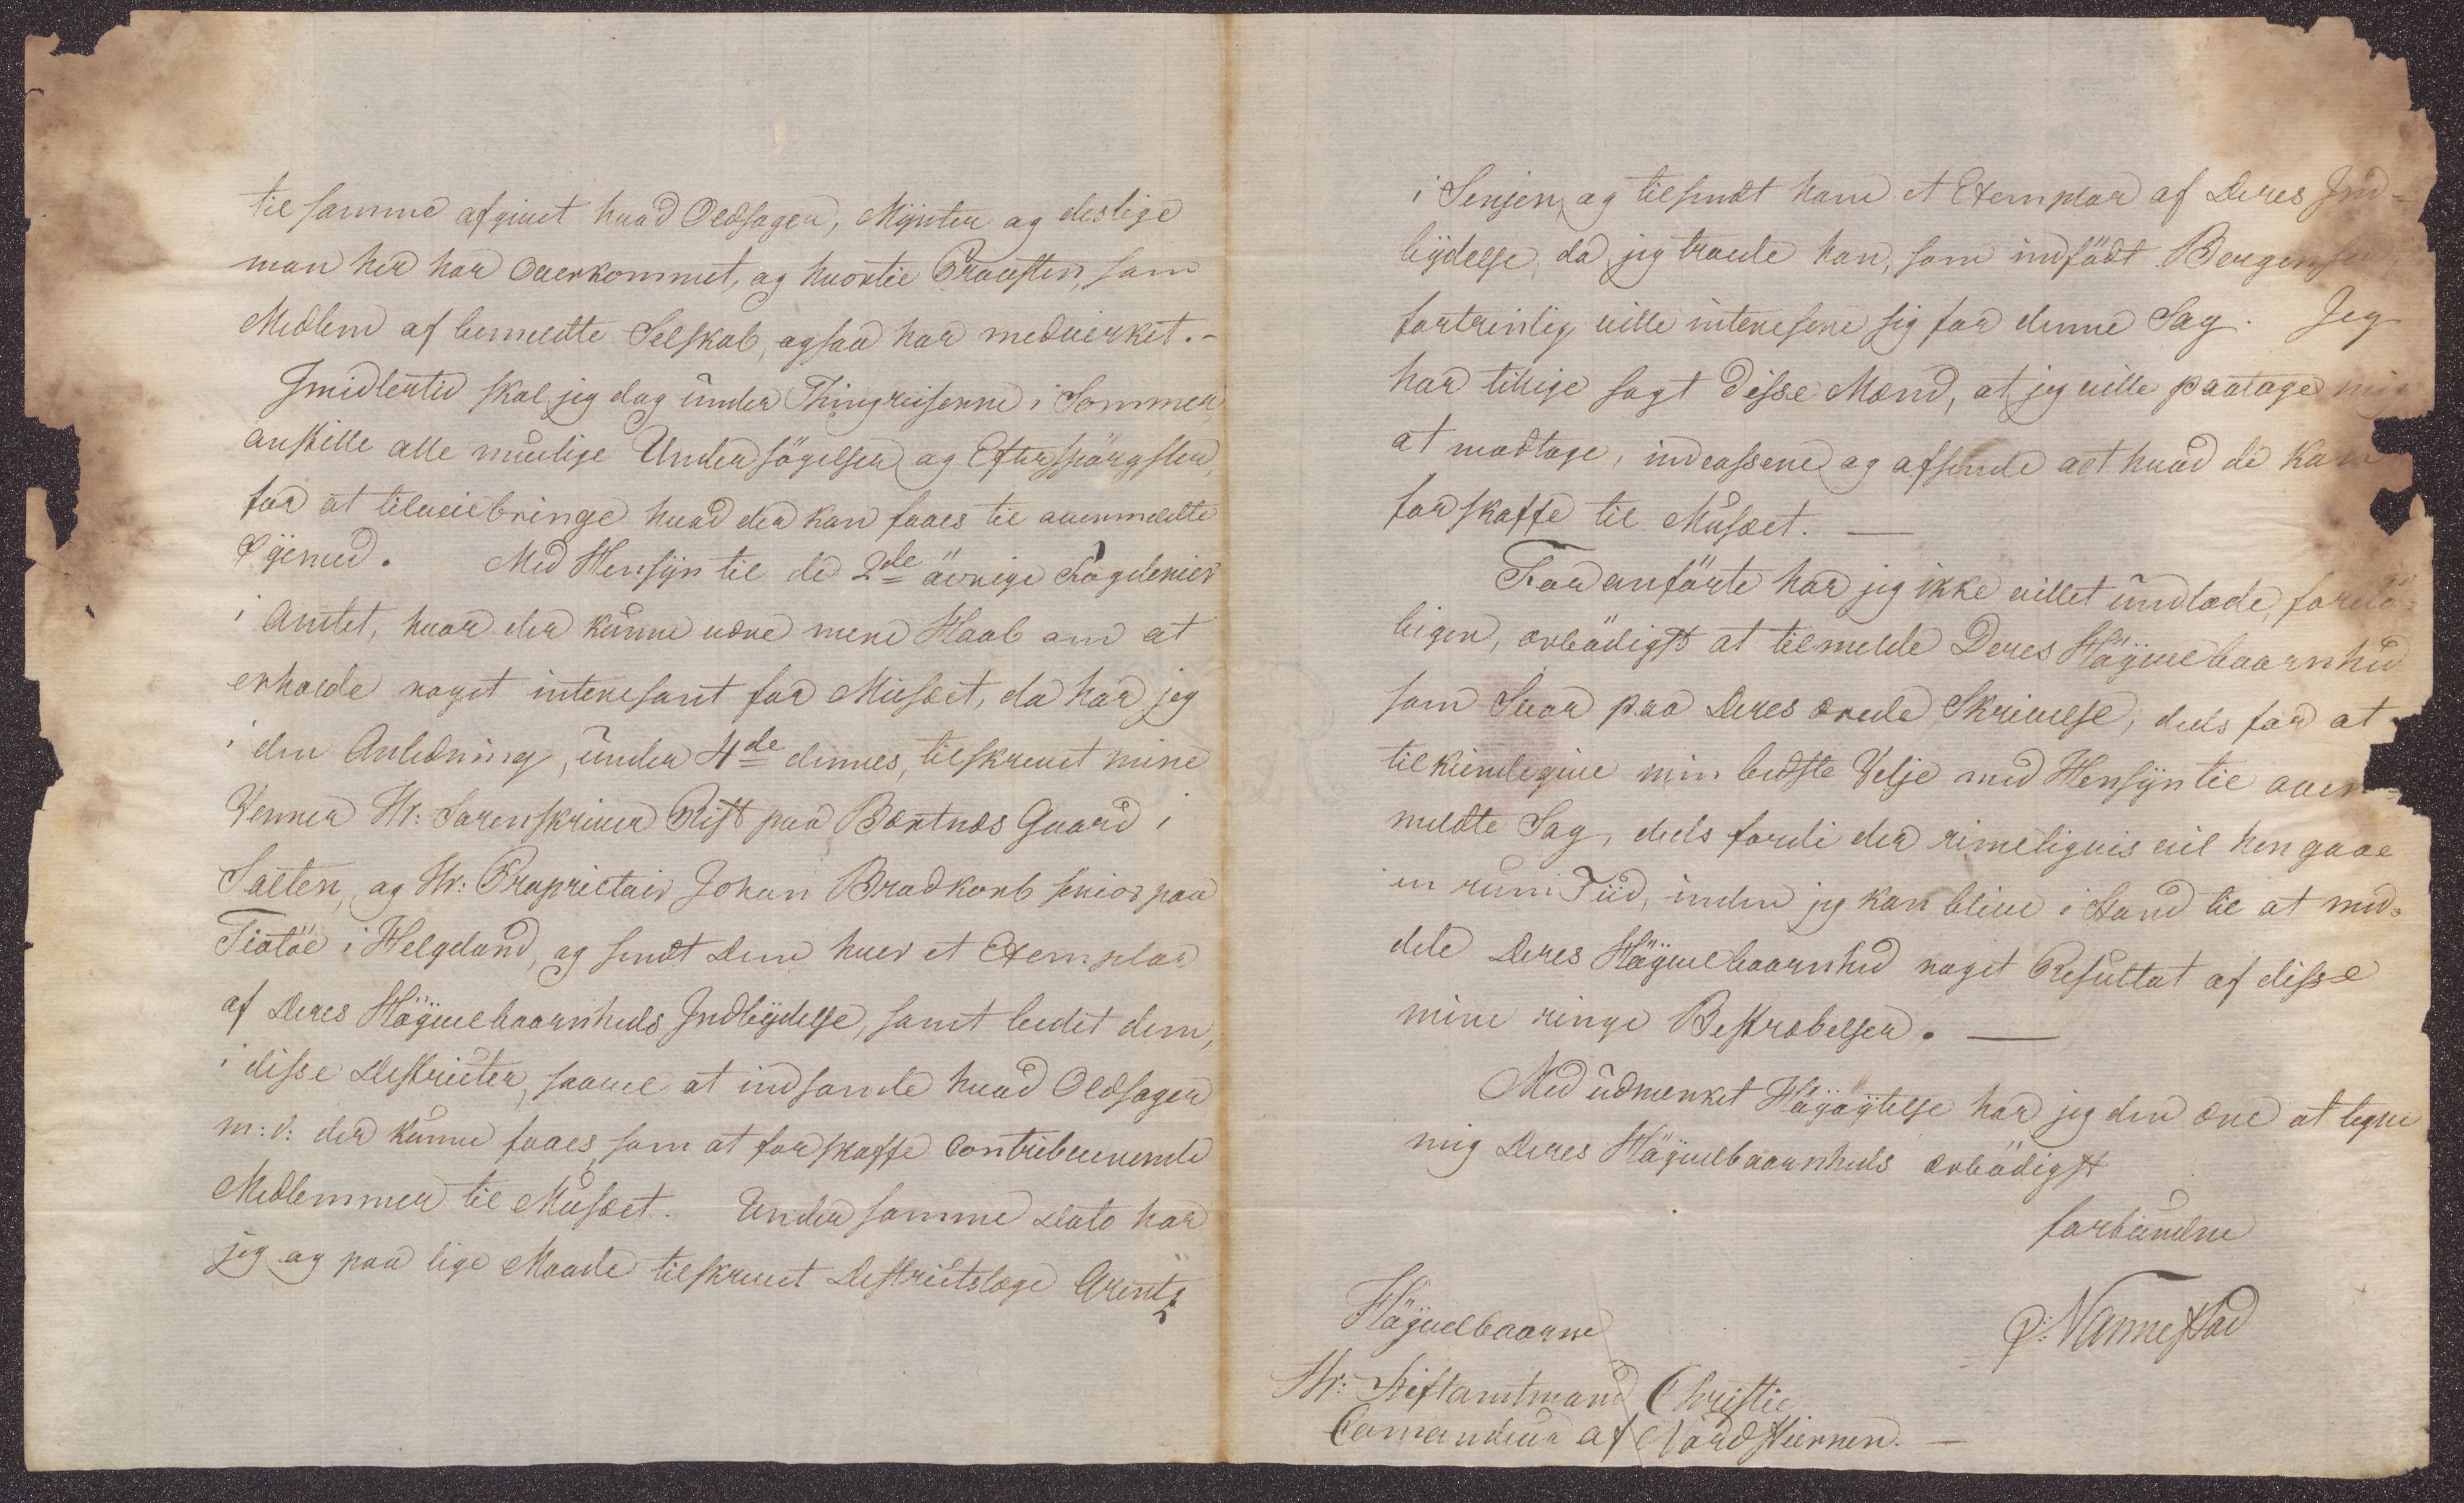 til samme afgivet hvad Oldsager, Mÿnter og deslige
man her har overkommet, og hvortil Provsten, som
Medlem af bemeldte Selskab, ogsaa har medvirket. -
Imidlertid skal jeg dog under Thingreiserne i Sommer,
anstille alle muelige Undersögelser og Efterspörgsler,
for at tilveiebringe hvad der kan faaes til ovenmeldte
Öjemed. Med Hensÿn til de 2de övrige Fogderier
i Amtet, hvor der kunne være mere Haab om at
erholde noget interesant for Musæet, da har jeg
i den Anledning, under 4de dennes, tilskrevet mine
Venner Hr: Sorenskriver Rist paa Bertnæs Gaard i
Salten, og Hr: Proprietair Johan Brodkorb senior paa
Tiøtöe i Helgeland, og sendt dem hver et Exemplar
af Deres Höÿvelbaarnheds Indbÿdelse, samt bedet dem,
i disse Destricter, saavel at indsamle hvad Oldsager
m: v: der kunne faaes, som at forskaffe Contribuerende
Medlemmer til Musæet. Under samme Dato har
jeg og paa lige Maade tilskrevet Destrictslæge Arentz
i Senjen, og tilsendt ham et Exemplar af Deres Ind=
bÿdelse, da jeg troede han, som indfödt Bergenser,
fortrinlig ville interesere sig for denne Sag. Jeg
har tillige sagt disse Mænd, at jeg ville paatage mig
at modtage, indcassere og afsende alt hvad de kan
forskaffe til Musæet. —
Foranförte har jeg ikke villet undlade, forelö=
bigen, ærbödigst at tilmelde Deres Höÿvelbaarnhed
som Svar paa Deres ærede Skrivelse, deels for at
tilkiendegive min bedste Velje med Hensÿn til oven=
meldte Sag, deels fordi der rimeligvis vil hengaae
en rum Tiid, inden jeg kan blive i Stand til at med=
dele Deres Höÿvelbaarnhed noget Resultat af disse
mine ringe Bestræbelser. —
Med udmerket Höÿagtelse har jeg den ære at tegne
mig Deres Höÿvelbaarnheds ærbödigst
forbundne
P: Vannestad
Höÿvelbaarne
Hr: Stiftamtmand Christie
Comandeur af Nordstiernen. —